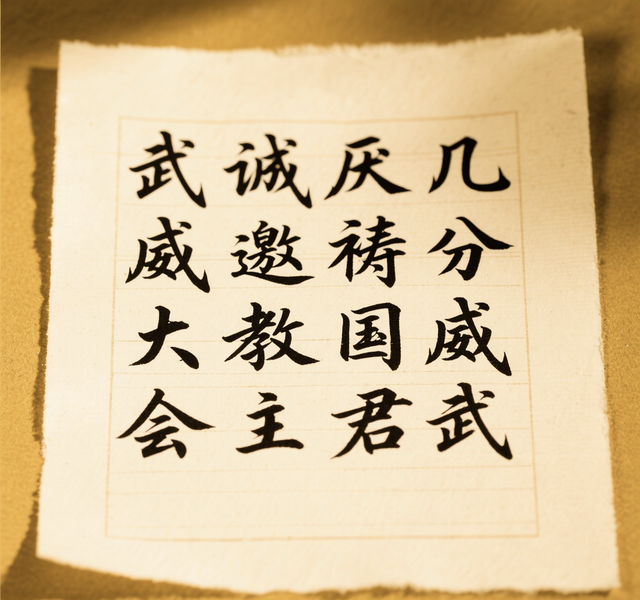 几分威武
厌祷国君
诚邀教主
武威大会